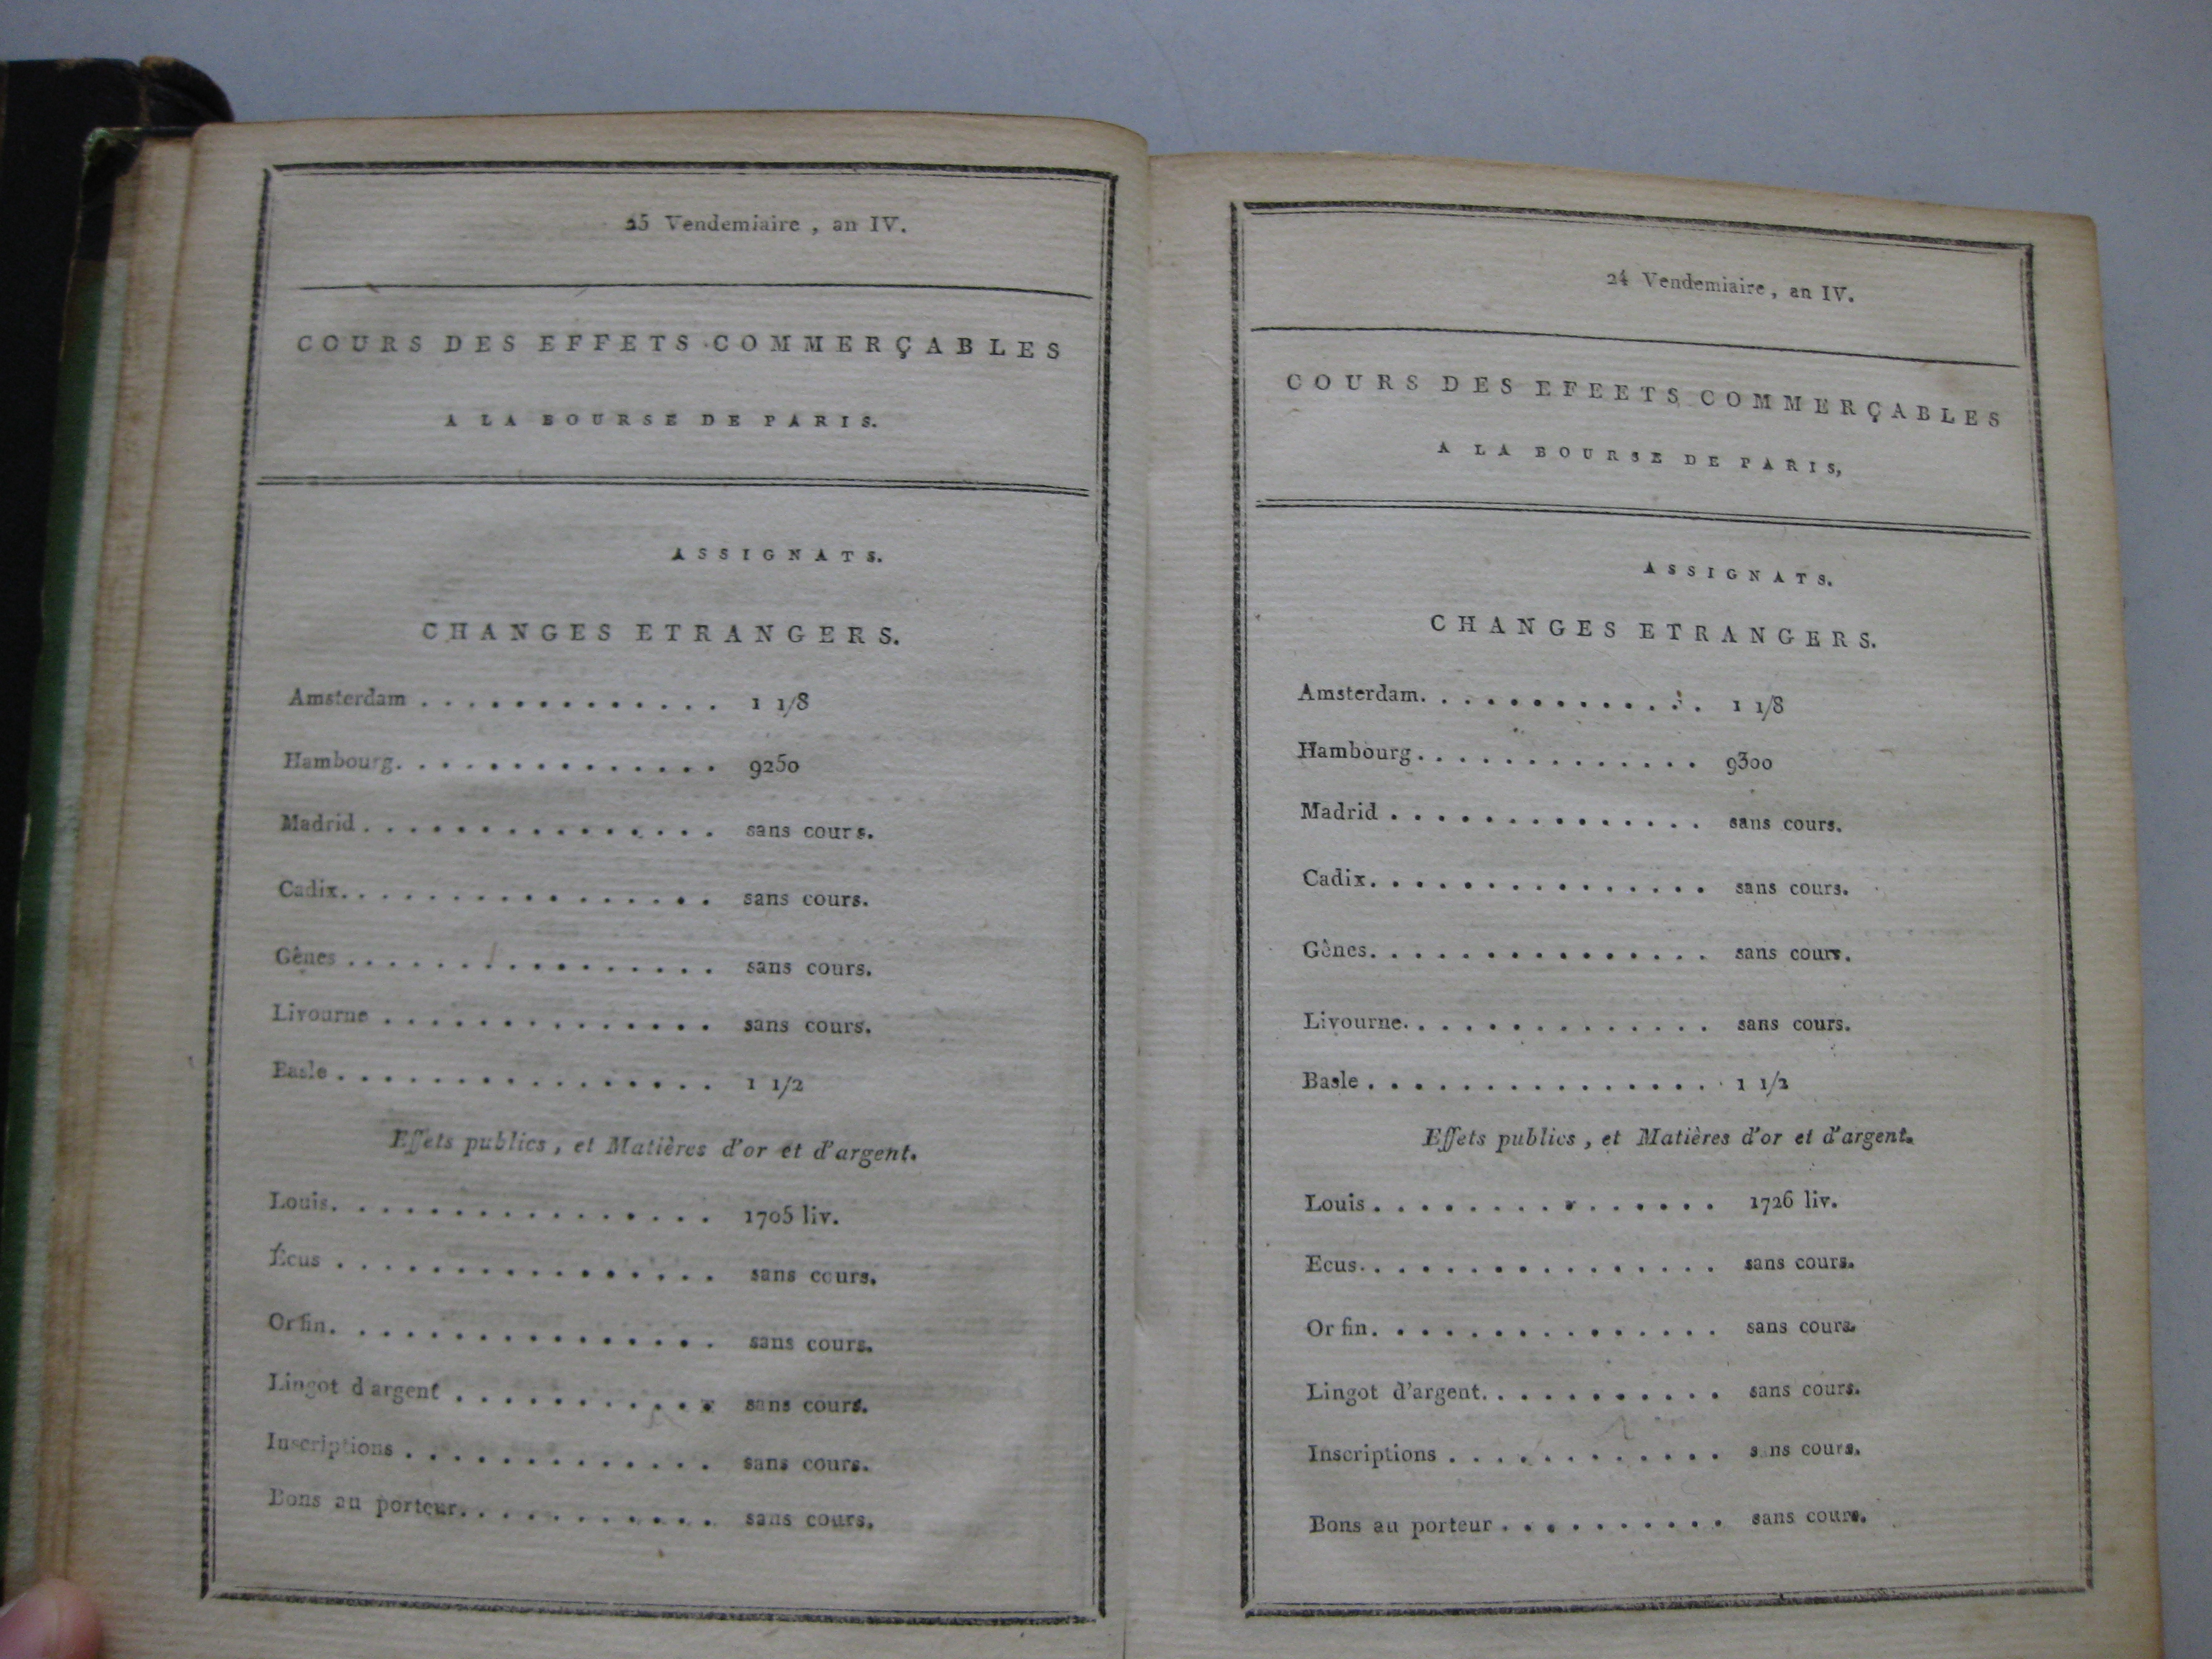 25 Vendemiaire, an IV.
COURS DES EFFETS COMMERÇABLES
A LA BOURSE DE PARIS.
ASSIGNATS.
CHANGES ETRANGERS.
Amsterdam . . . . . . . . . . . . . 1 1/8
Hambourg. . . . . . . . . . . . . . 9250
Madrid . . . . . . . . . . . . . . . . sans cours.
Cadix. . . . . . . . . . . . . . . . . sans cours.
Gênes . . . . . . . . . . . . . . . . sans cours.
Livourne . . . . . . . . . . . . . . . sans cours.
Basle . . . . . . . . . . . . . . . . . 1 1/2
Effets publics, et Matières d'or et d'argent.
Louis. . . . . . . . . . . . . . . . . 1705 liv.
Écus . . . . . . . . . . . . . . . . . sans cours.
Or fin. . . . . . . . . . . . . . . . . sans cours.
Lingot d argent . . . . . . . . . . . . sans cours.
Inscriptions . . . . . . . . . . . . . . sans cours.
Bons au porteur. . . . . . . . . . . . sans cours.
24 Vendemiaire, an IV.
COURS DES EFEETS COMMERÇABLES
A LA BOURSE DE PARIS,
ASSIGNATS.
CHANGES ETRANGERS.
Amsterdam. . . . . . . . . . . . . 1 1/8
Hambourg. . . . . . . . . . . . . 9300
Madrid . . . . . . . . . . . . . . sans cours.
Cadix. . . . . . . . . . . . . . . sans cours.
Gênes. . . . . . . . . . . . . . . sans cours.
Livourne. . . . . . . . . . . . . . sans cours.
Basle . . . . . . . . . . . . . . . 1 1/2
Effets publics, et Matières d'or et d'argent.
Louis . . . . . . . . . . . . . . . 1726 liv.
Ecus. . . . . . . . . . . . . . . . sans cours.
Or fin. . . . . . . . . . . . . . . sans cours.
Lingot d'argent. . . . . . . . . . . sans cours.
Inscriptions . . . . . . . . . . . . s ns cours.
Bons au porteur . . . . . . . . . . sans cours.